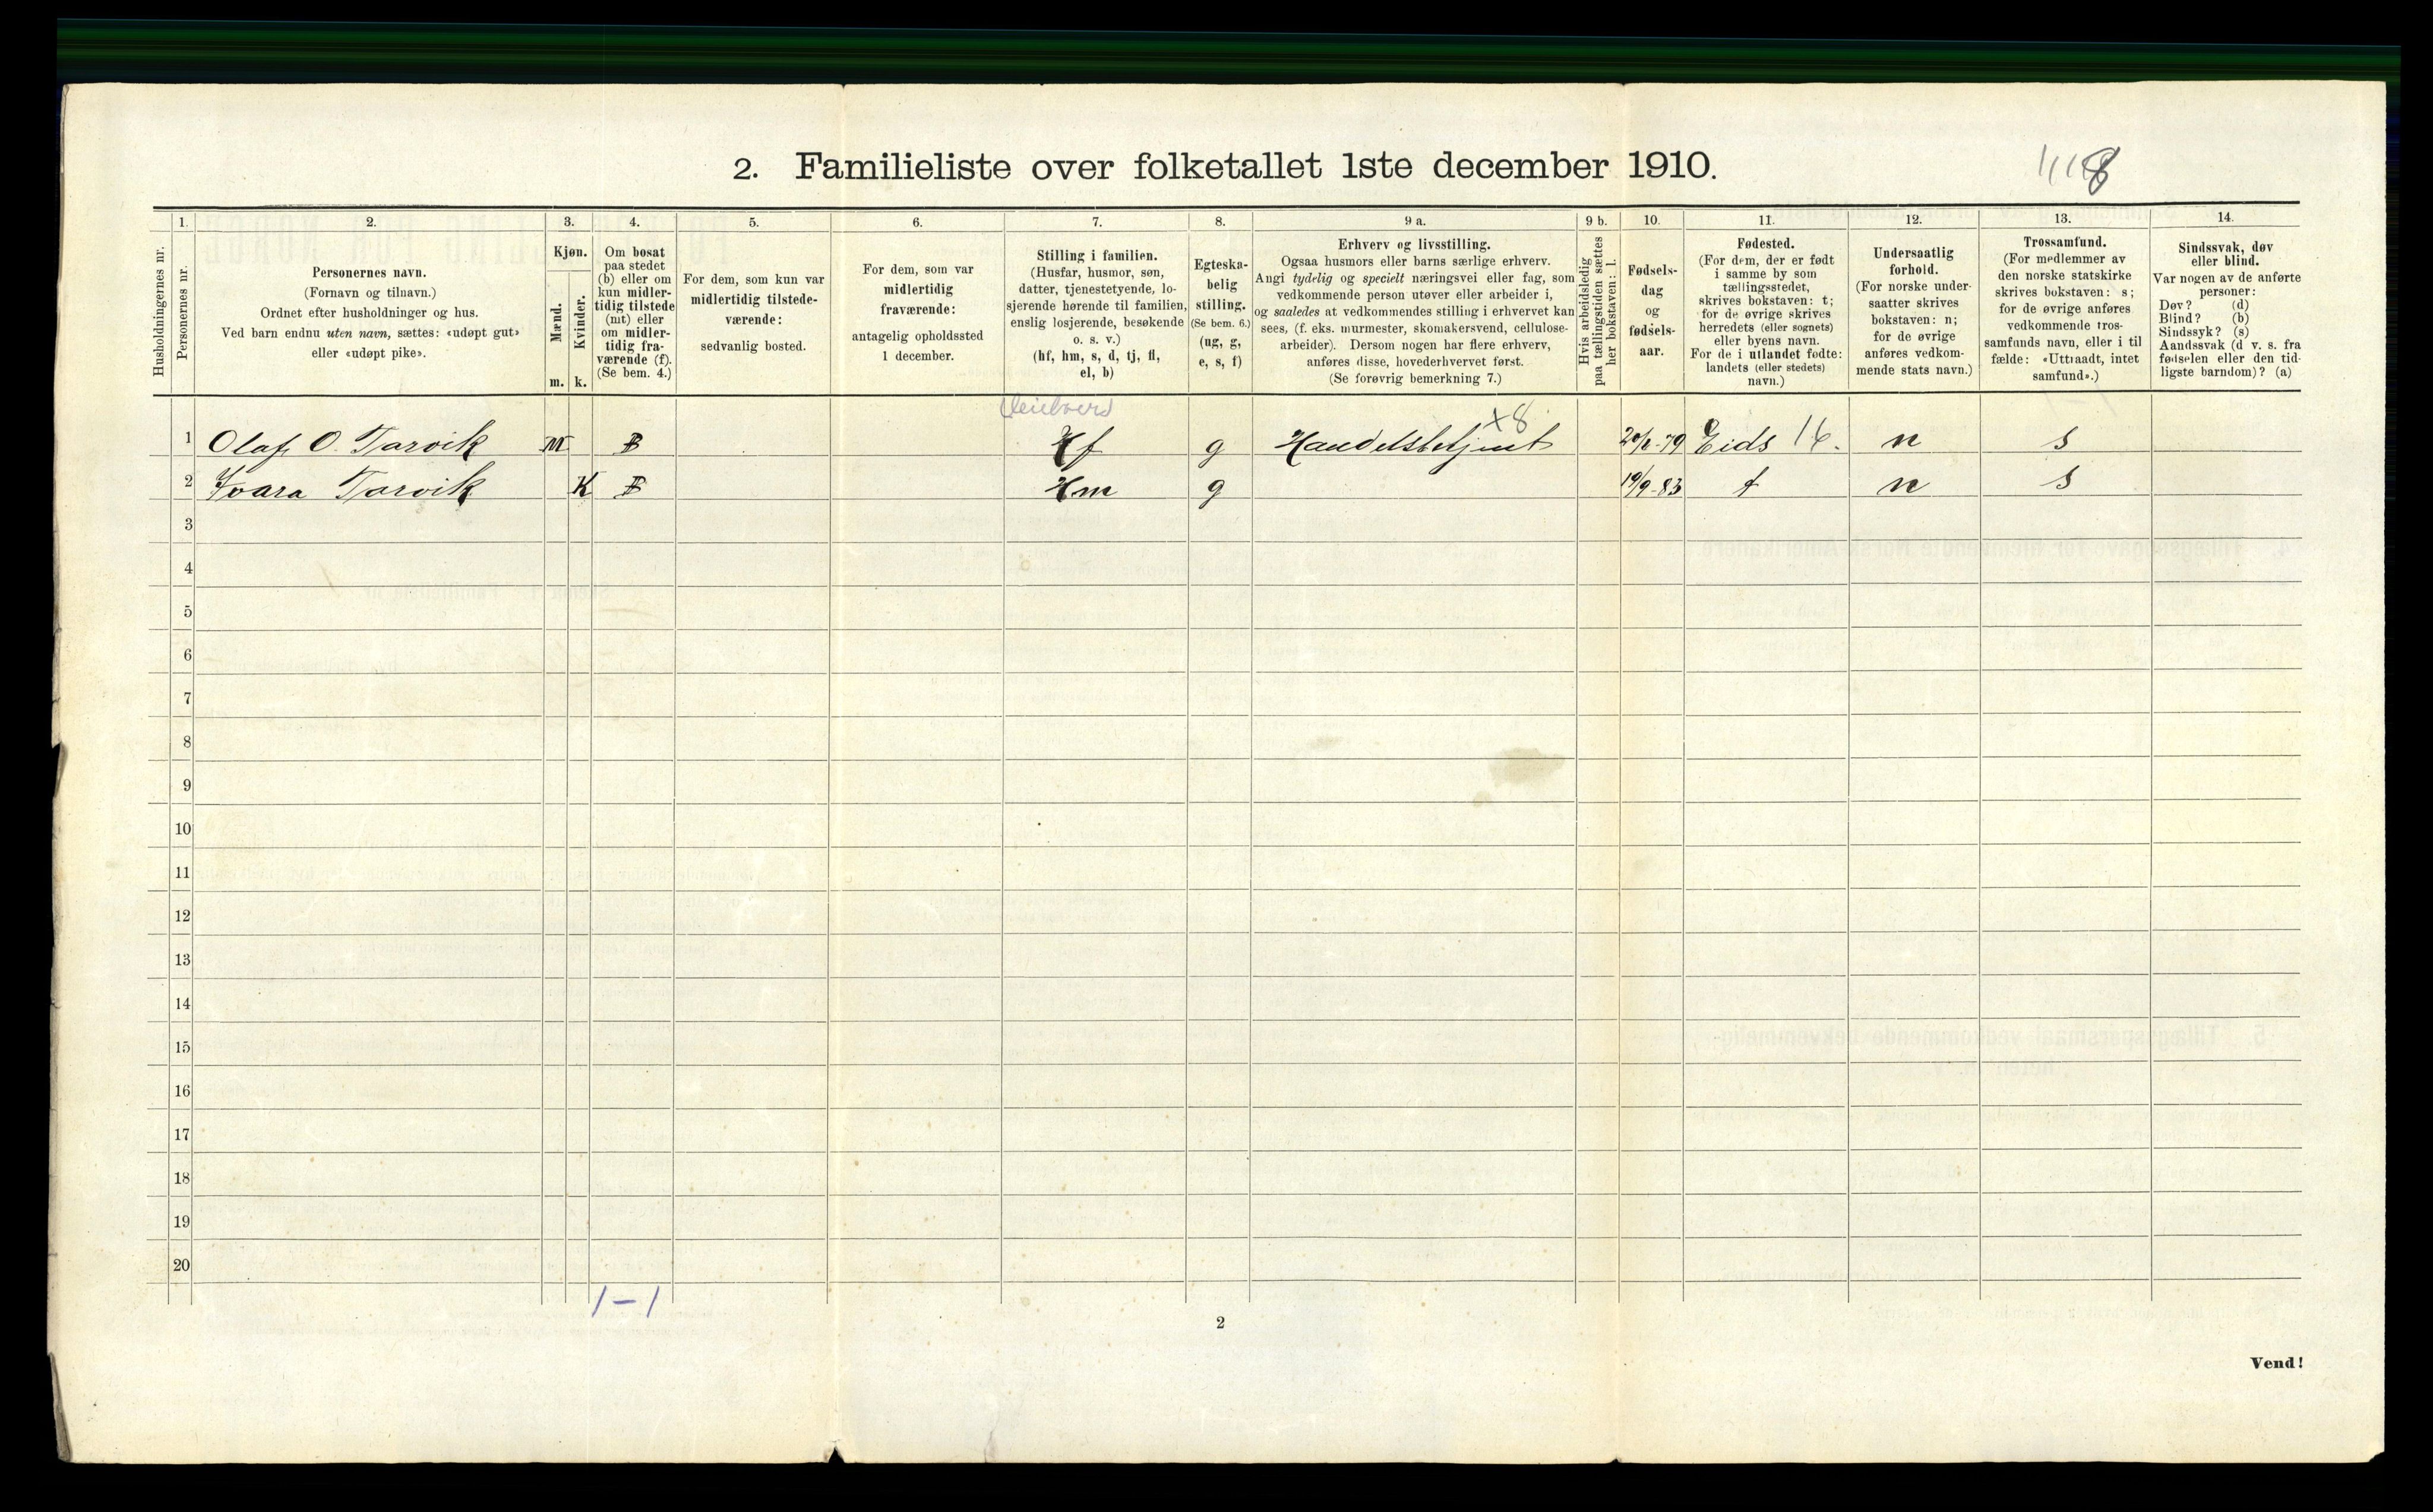 2. Familieliste over folketallet 1ste december 1910.
1.
2.
3.
4.
5.
6.
7.
8.
9 a.
9 b.
10.
11.
12.
13.
14.
Husholdningernes nr.
Personernes nr.
Personernes navn.
(Fornavn og tilnavn.)
Ordnet efter husholdninger og hus.
Ved barn endnu uten navn, sættes: «udøpt gut»
eller «udøpt pike».
Kjøn.
Mænd.
Kvinder.
m. k.
Om bosat
paa stedet
(b) eller om
kun midler-
tidig tilstede
(mt) eller
om midler-
tidig fra-
værende (f).
(Se bem. 4.)
For dem, som kun var
midlertidig tilstede-
værende:
sedvanlig bosted.
For dem, som var
midlertidig
fraværende:
antagelig opholdssted
1 december.
Stilling i familien.
(Husfar, husmor, søn,
datter, tjenestetyende, lo-
sjerende hørende til familien,
enslig losjerende, besøkende
o. s. v.)
(hf, hm, s, d, tj, fl,
el, b)
Egteska-
belig
stilling.
(Se bem. 6.)
(ug, g,
e, s, f)
Erhverv og livsstilling.
Ogsaa husmors eller barns særlige erhverv.
Angi tydelig og specielt næringsvei eller fag, som
vedkommende person utøver eller arbeider i,
og saaledes at vedkommendes stilling i erhvervet kan
sees, (f. eks. murmester, skomakersvend, cellulose-
arbeider). Dersom nogen har flere erhverv,
anføres disse, hovederhvervet først.
(Se forøvrig bemerkning 7.)
Hvis arbeidsledig
paa tællingstiden sættes
her bokstaven: l.
Fødsels-
dag
og
fødsels-
aar.
Fødested.
(For dem, der er født
i samme by som
tællingsstedet,
skrives bokstaven: t;
for de øvrige skrives
herredets (eller sognets)
eller byens navn.
For de i utlandet fødte:
landets (eller stedets)
navn.)
Undersaatlig
forhold.
(For norske under-
saatter skrives
bokstaven: n;
for de øvrige
anføres vedkom-
mende stats navn.)
Trossamfund.
(For medlemmer av
den norske statskirke
skrives bokstaven: s;
for de øvrige anføres
vedkommende tros-
samfunds navn, eller i til-
fælde: «Uttraadt, intet
samfund».)
Sindssvak, døv
eller blind.
Var nogen av de anførte
personer:
Døv? (d)
Blind? (b)
Sindssyk? (s)
Aandssvak (d v. s. fra
fødselen eller den tid-
ligste barndom)? (a)
1 Olaf O. Tarvik M B Hf g Handelsbetjent x8 Eids 16. n s
2 Ivara Tarvik K B Hm g 19/9-83 t n s
3
4
5
6
7
8
9
10
11
12
13
14
15
16
17
18
19
20
1-1
2
Vend!